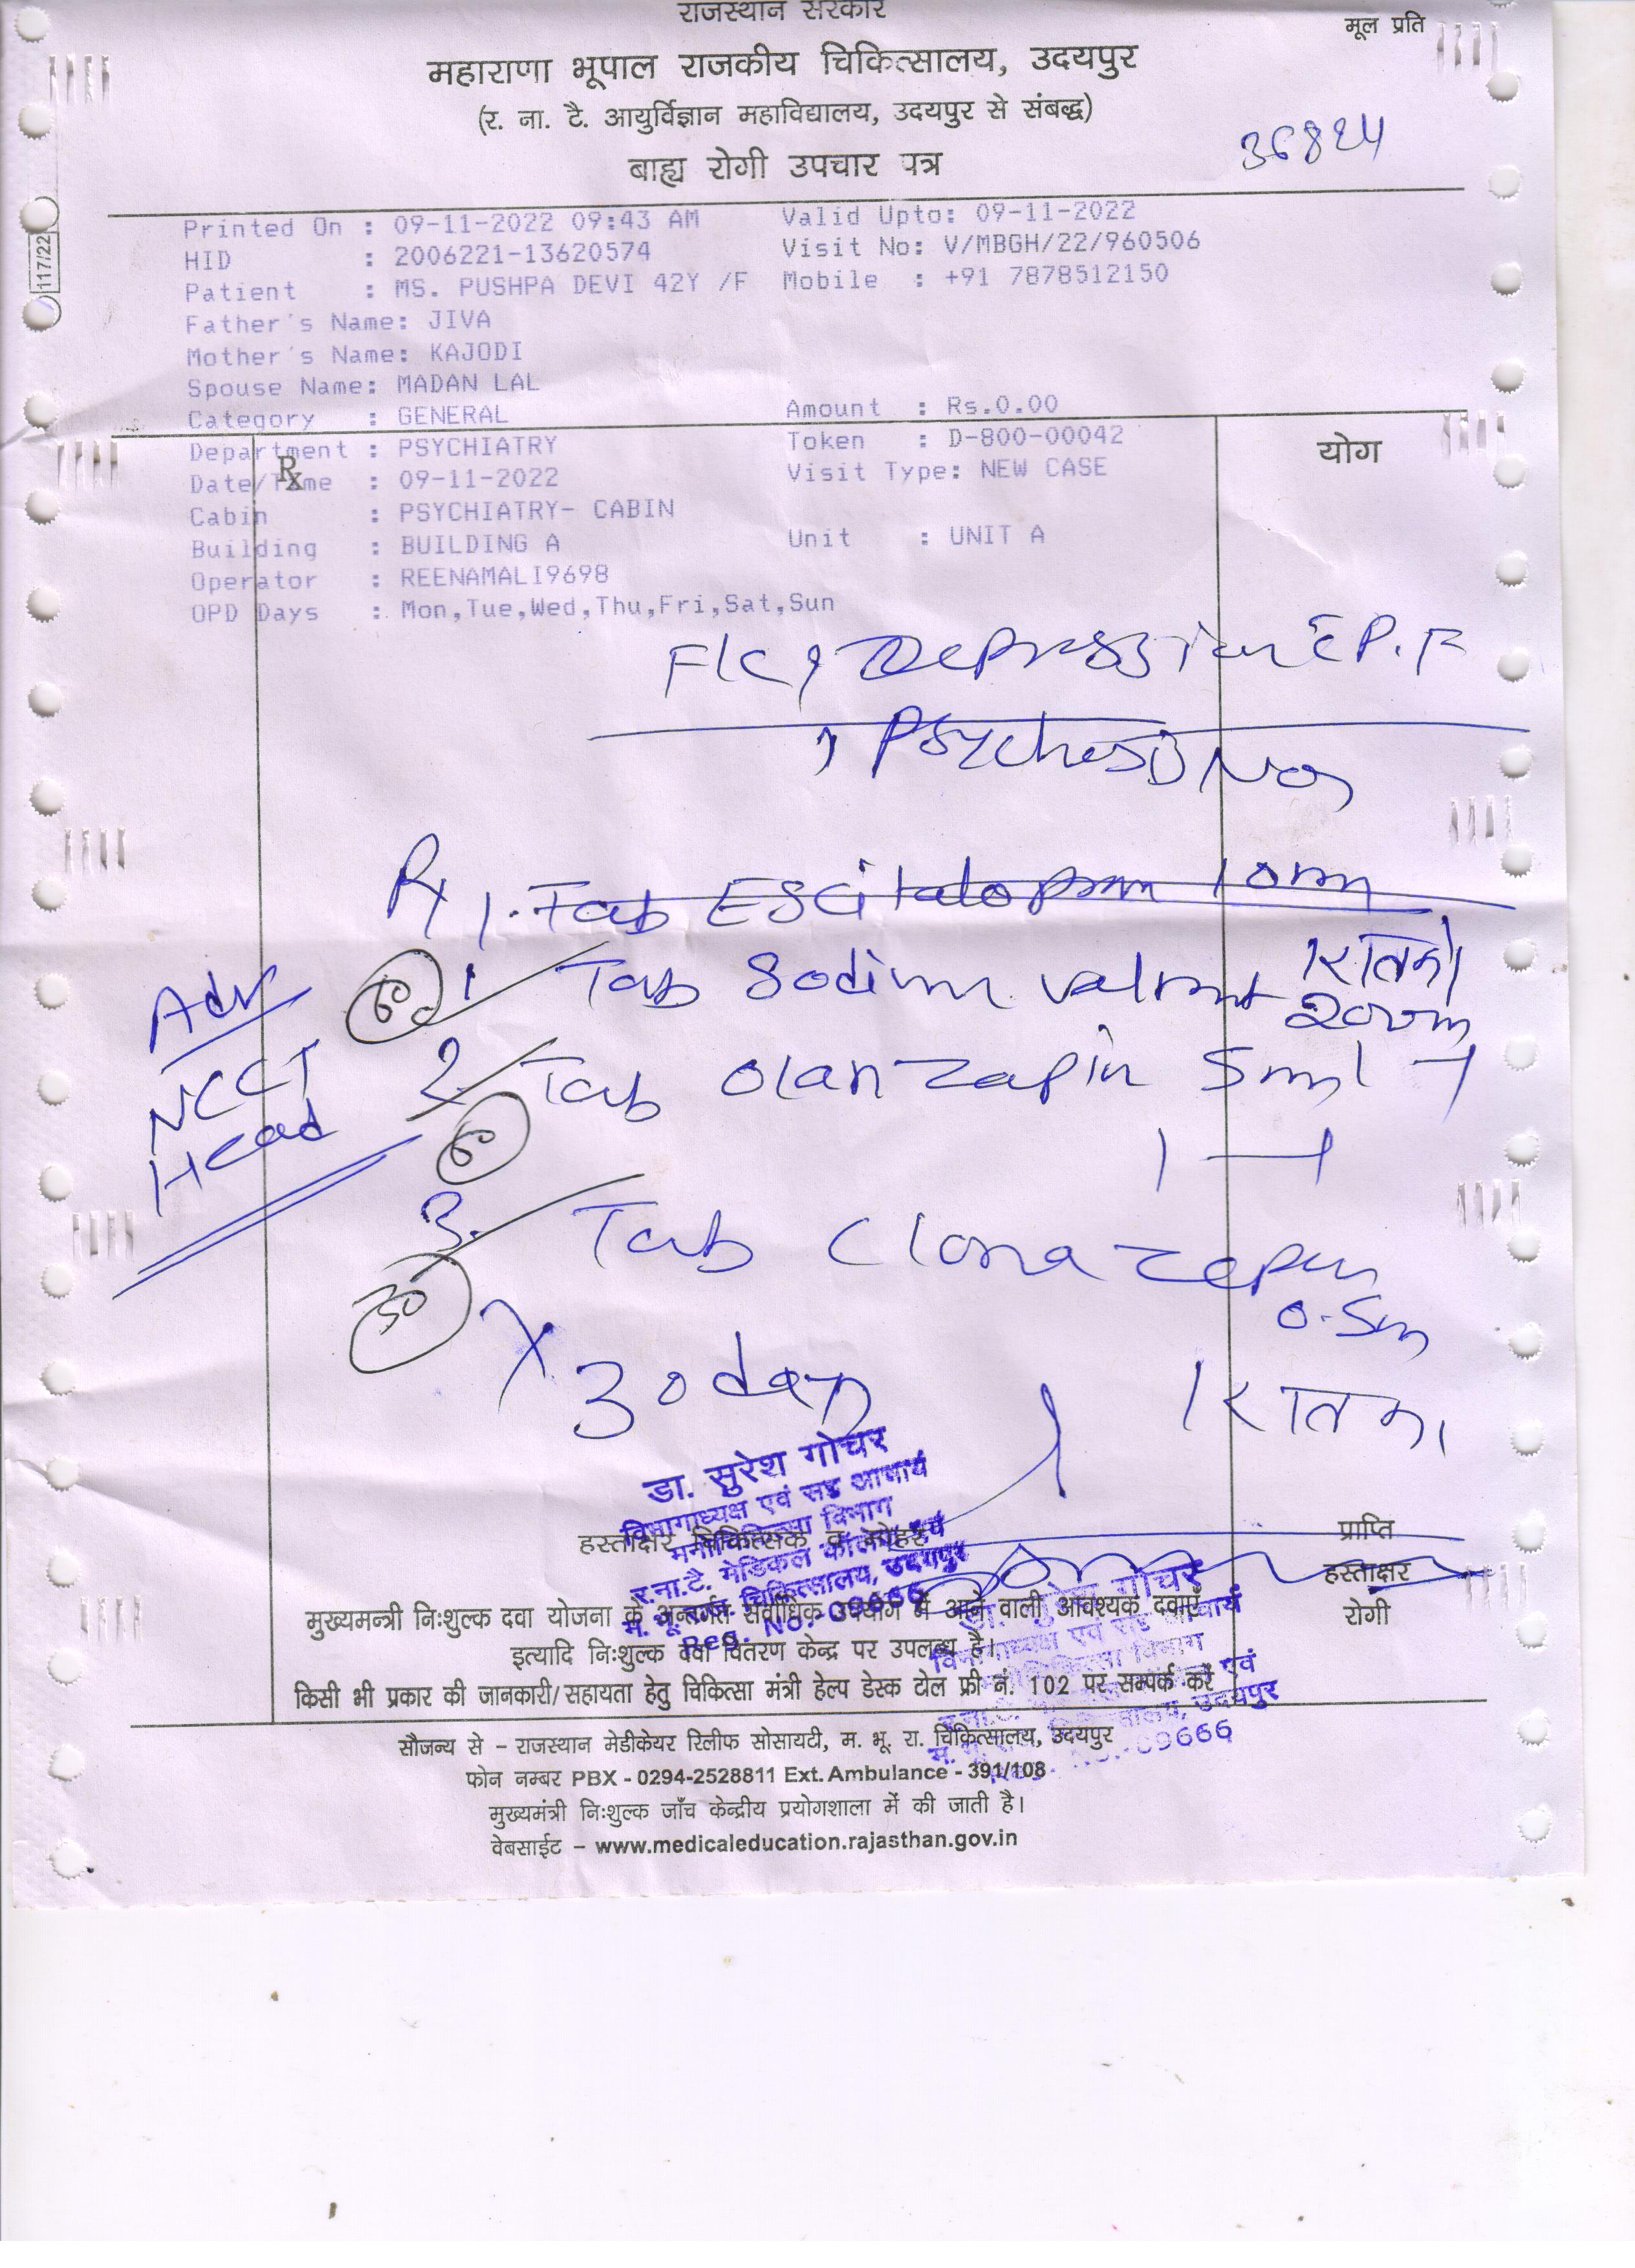 राजस्थान सरकार
मूल प्रति
महाराणा भूपाल राजकीय चिकित्सालय, उदयपुर
(र. ना. टै. आयुर्विज्ञान महाविद्यालय, उदयपुर से संबद्ध)
बाह्य रोगी उपचार पत्र
36824
117/22
Printed On : 09-11-2022 09:43 AM Valid Upto: 09-11-2022
HID : 2006221-13620574 Visit No: V/MBGH/22/960506
Patient : MS. PUSHPA DEVI 42Y /F Mobile : +91 7878512150
Father's Name: JIVA
Mother's Name: KAJODI
Spouse Name: MADAN LAL
Category : GENERAL Amount : Rs.0.00
Department : PSYCHIATRY Token : D-800-00042
योग
Rx
Date/Time : 09-11-2022 Visit Type: NEW CASE
Cabin : PSYCHIATRY- CABIN
Building : BUILDING A Unit : UNIT A
Operator : REENAMALI9698
OPD Days : Mon,Tue,Wed,Thu,Fri,Sat,Sun
Depression P.F
Psychosis NOS
Rx 1. Tab Escitalopram 10mg
1 Tab Sodium valproate 200mg
1 रात को
Adv
NCCT
Head
2 Tab Olanzapin 5mg
1 — 1
3. Tab Clonazepam
0.5mg
30
x 30 days
1 रात को
डा. सुरेश गोचर
विभागाध्यक्ष एवं सह आचार्य
मनोचिकित्सा विभाग
र.ना.टै. मेडिकल कॉलेज एवं
म. भू. राज. चिकित्सालय, उदयपुर
Reg. No.-09666
हस्ताक्षर चिकित्सक व मोहर
प्राप्ति
हस्ताक्षर
रोगी
मुख्यमन्त्री निःशुल्क दवा योजना के अन्तर्गत सर्वाधिक उपयोग में आने वाली आवश्यक दवाएं
इत्यादि निःशुल्क दवा वितरण केन्द्र पर उपलब्ध है।
किसी भी प्रकार की जानकारी/सहायता हेतु चिकित्सा मंत्री हेल्प डेस्क टोल फ्री नं. 102 पर सम्पर्क करें
सौजन्य से – राजस्थान मेडीकेयर रिलीफ सोसायटी, म. भू. रा. चिकित्सालय, उदयपुर
फोन नम्बर PBX - 0294-2528811 Ext. Ambulance - 391/108
मुख्यमंत्री निःशुल्क जाँच केन्द्रीय प्रयोगशाला में की जाती है।
वेबसाईट – www.medicaleducation.rajasthan.gov.in